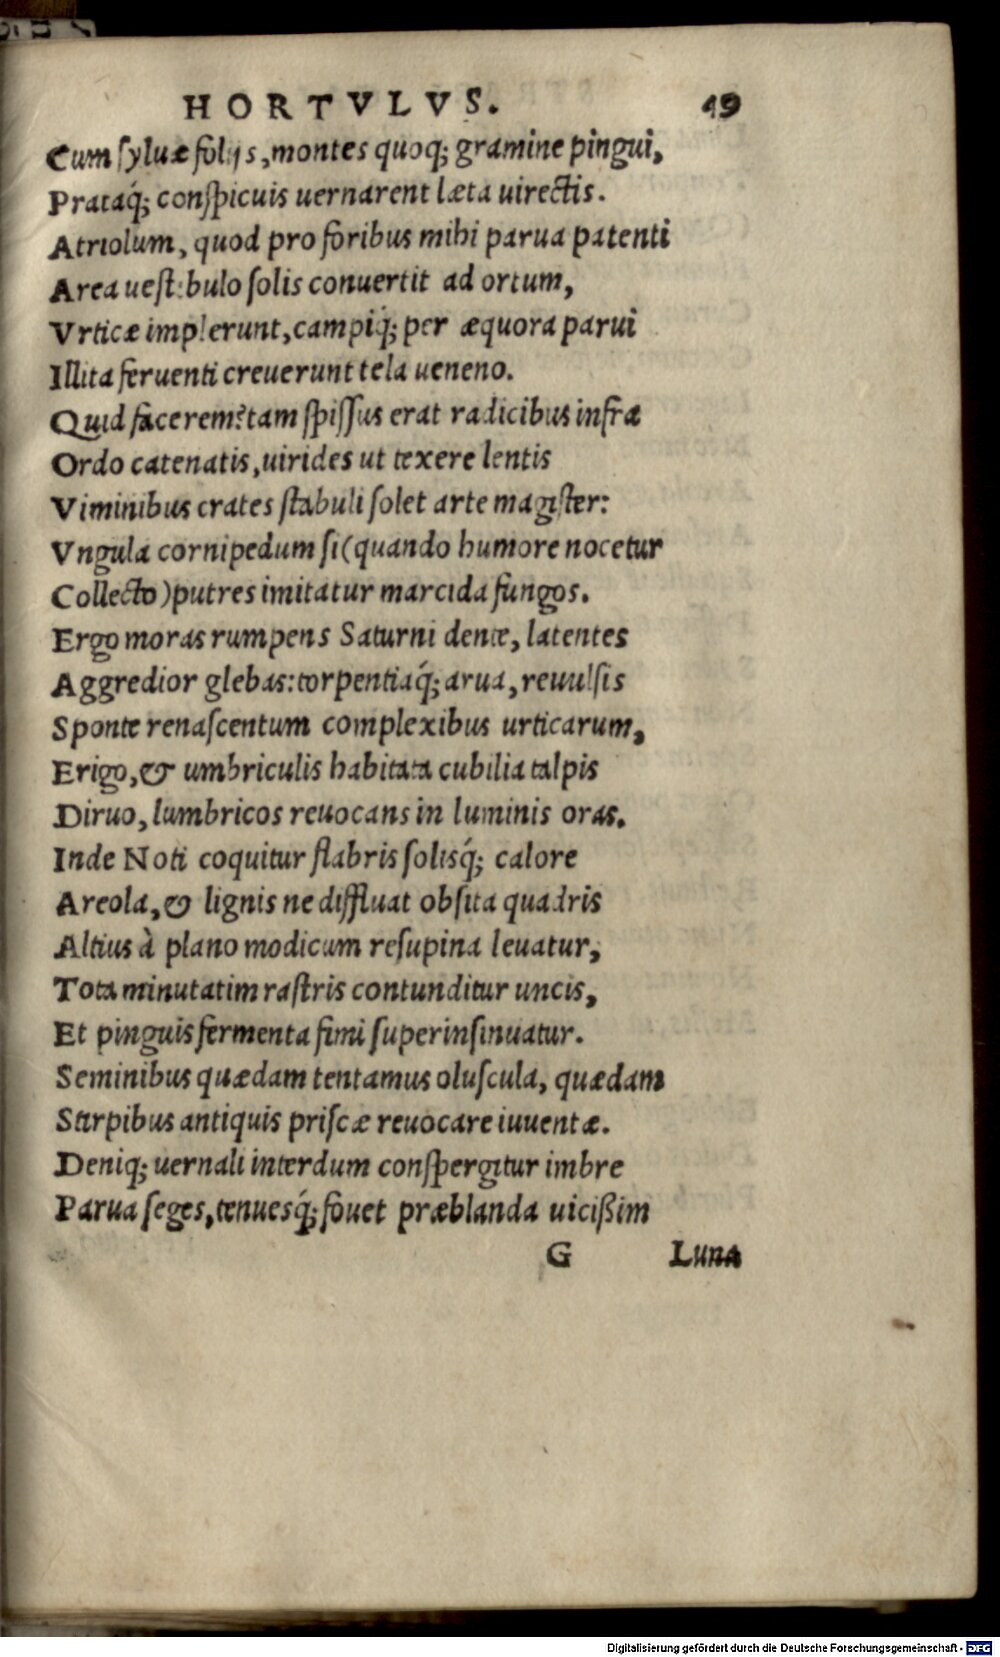 HORTVLVS. 49
Cum syluæ folijs, montes quoq; gramine pingui,
Prataq́; conspicuis uernarent læta uirectis.
Atriolum, quod pro foribus mihi parua patenti
Area uestibulo solis conuertit ad ortum,
Vrticæ implerunt, campiq́; per æquora parui
Illita feruenti creuerunt tela ueneno.
Quid facerem? tam spissus erat radicibus infra
Ordo catenatis, uirides ut texere lentis
Viminibus crates stabuli solet arte magister:
Vngula cornipedum si (quando humore nocetur
Collecto) putres imitatur marcida fungos.
Ergo moras rumpens Saturni dente, latentes
Aggredior glebas: torpentiaq́; arua, reuulsis
Sponte renascentum complexibus urticarum,
Erigo, & umbriculis habitata cubilia talpis
Diruo, lumbricos reuocans in luminis oras.
Inde Noti coquitur flabris solisq́; calore
Areola, & lignis ne diffluat obsita quadris
Altius à plano modicum resupina leuatur,
Tota minutatim rastris contunditur uncis,
Et pinguis fermenta fimi superinsinuatur.
Seminibus quædam tentamus oluscula, quædam
Stirpibus antiquis priscæ reuocare iuuentæ.
Deniq; uernali interdum conspergitur imbre
Parua seges, tenuesq́; fouet præblanda uicißim
G Luna
Digitalisierung gefördert durch die Deutsche Forschungsgemeinschaft - DFG